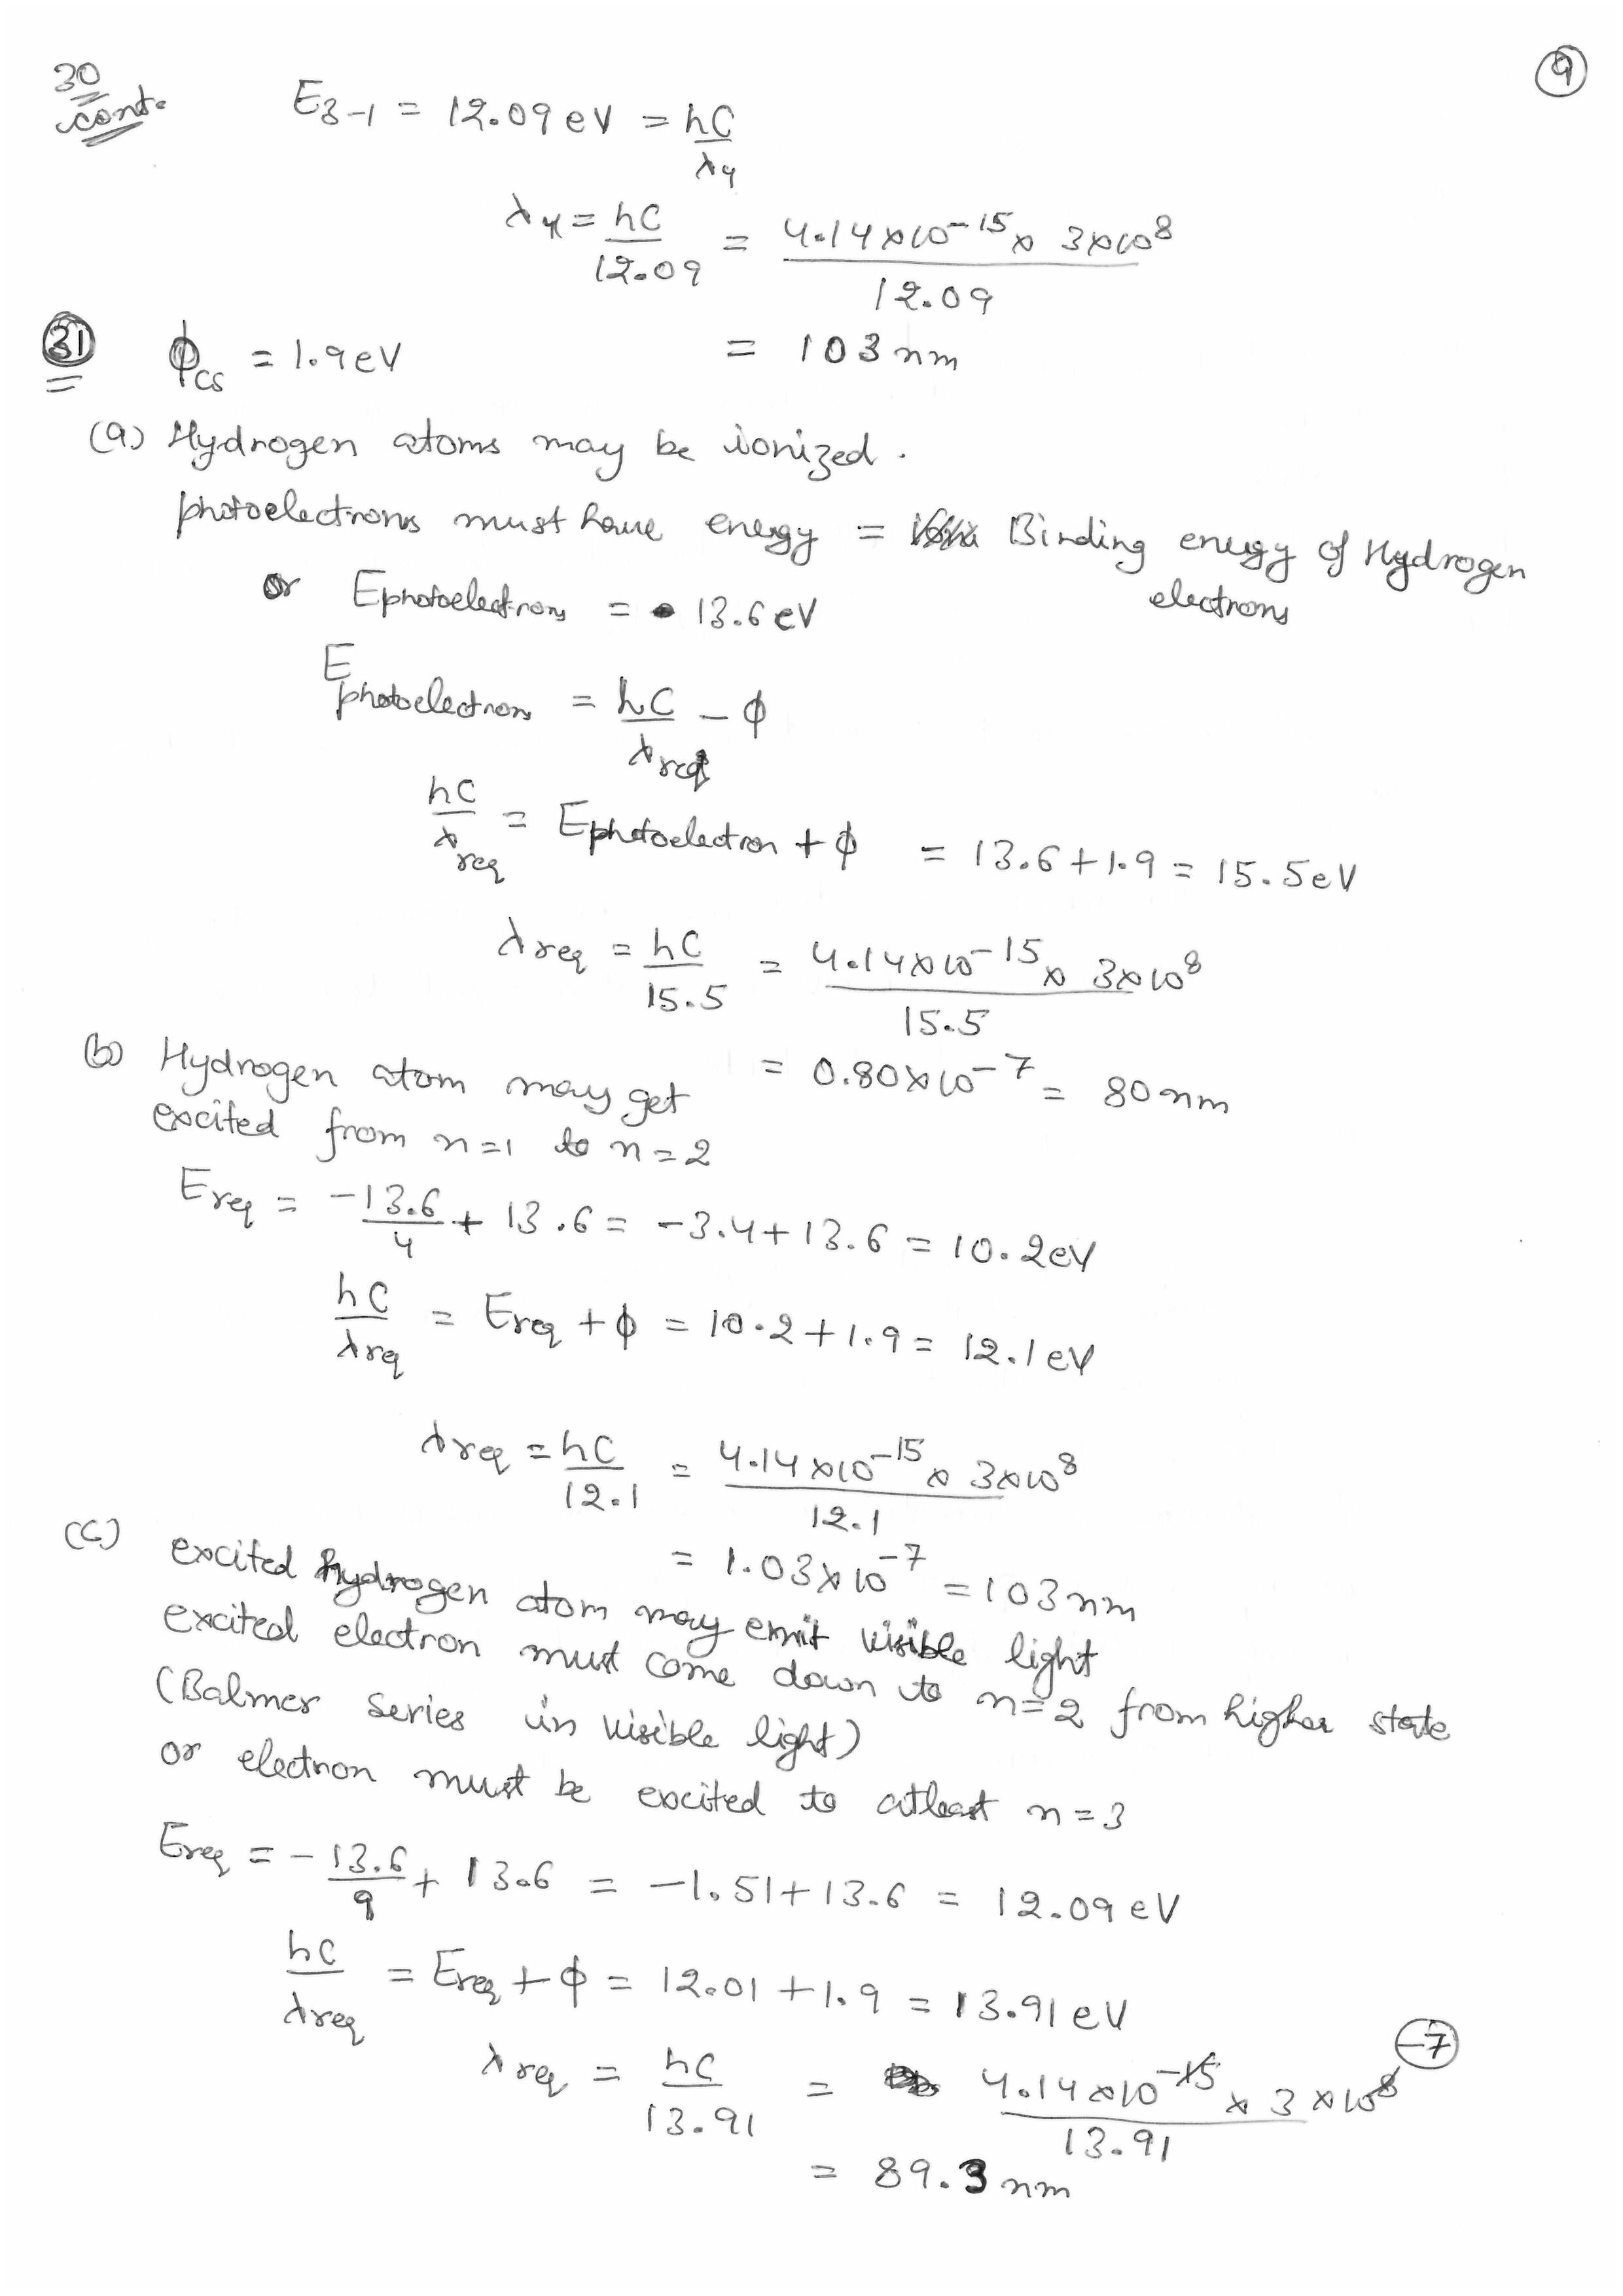 30 cont.
9
E3-1 = 12.09 eV = hC/λ4
λ4 = hC/12.09 = 4.14×10^-15 × 3×10^8 / 12.09
= 103 nm
31 ϕCS = 1.9 eV
(a) Hydrogen atoms may be ionized.
photoelectrons must have energy = Binding energy of Hydrogen electrons
or Ephotoelectrons = 13.6 eV
Ephotoelectrons = hC/λreq − ϕ
hC/λreq = Ephotoelectron + ϕ = 13.6 + 1.9 = 15.5 eV
λreq = hC/15.5 = 4.14×10^-15 × 3×10^8 / 15.5
= 0.80×10^-7 = 80 nm
(b) Hydrogen atom may get
excited from n=1 to n=2
Ereq = −13.6/4 + 13.6 = −3.4 + 13.6 = 10.2 eV
hC/λreq = Ereq + ϕ = 10.2 + 1.9 = 12.1 eV
λreq = hC/12.1 = 4.14×10^-15 × 3×10^8 / 12.1
= 1.03×10^-7 = 103 nm
(c) excited hydrogen atom may emit visible light
excited electron must come down to n=2 from higher state
(Balmer series in visible light)
or electron must be excited to atleast n=3
Ereq = −13.6/9 + 13.6 = −1.51 + 13.6 = 12.09 eV
hC/λreq = Ereq + ϕ = 12.01 + 1.9 = 13.91 eV
λreq = hC/13.91 = 4.14×10^-15 × 3×10^8 / 13.91
-7
= 89.3 nm